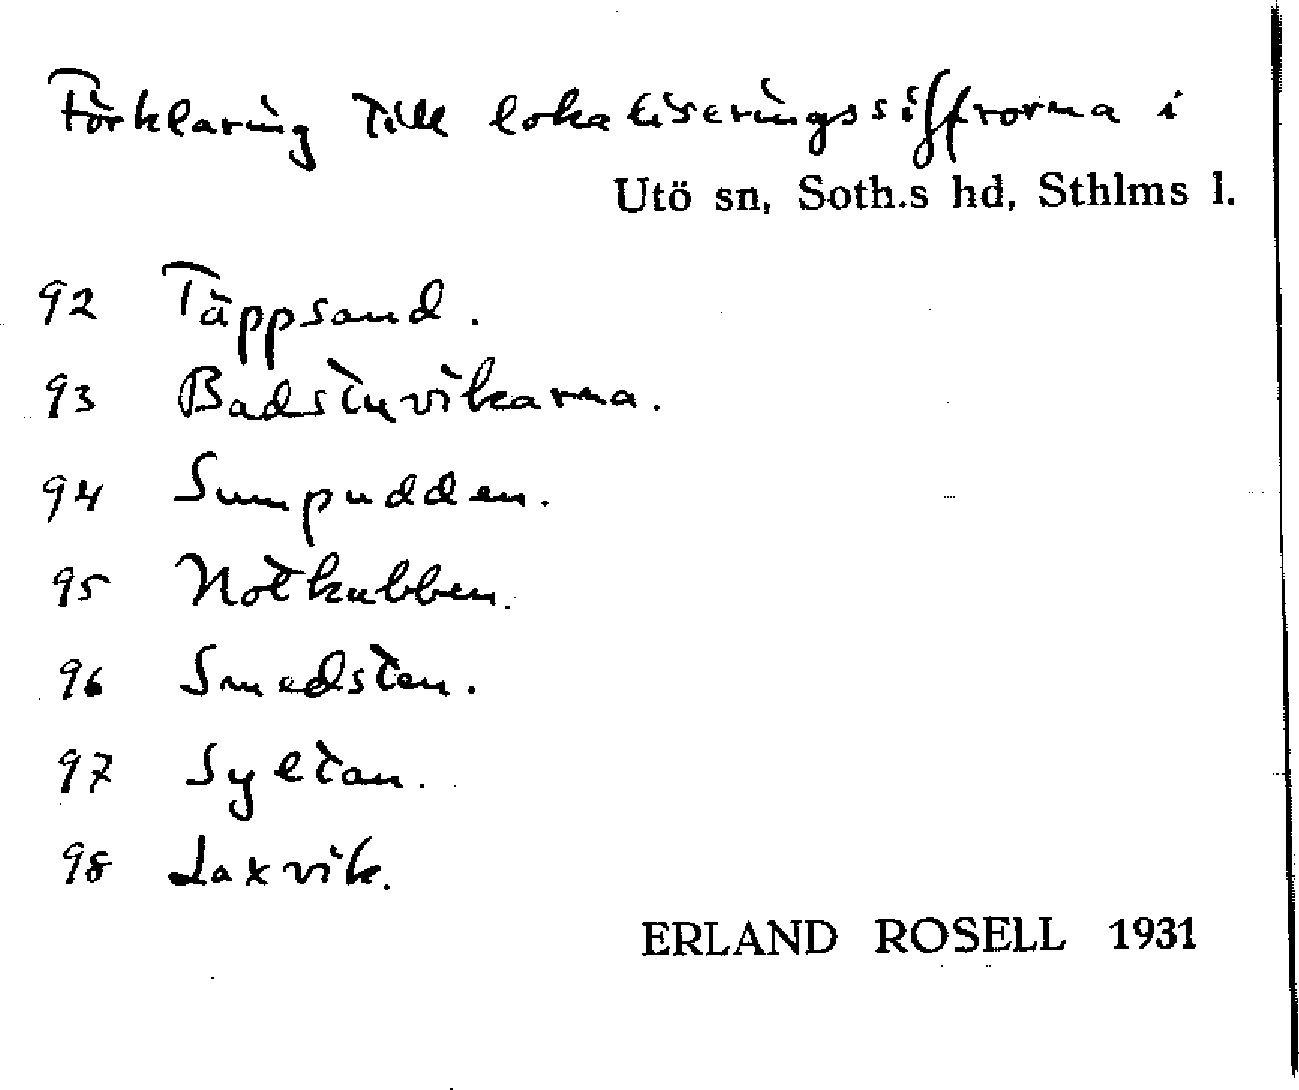 Förklaring till lokaliseringssiffrorna i
Utö sn, Soth.s hd, Sthlms l.
92 Täppsand.
93 Badstuvikarna.
94 Sumpudden.
95 Notkubben.
96 Smedsten.
97 Syltan.
98 Laxvik.
ERLAND ROSELL 1931